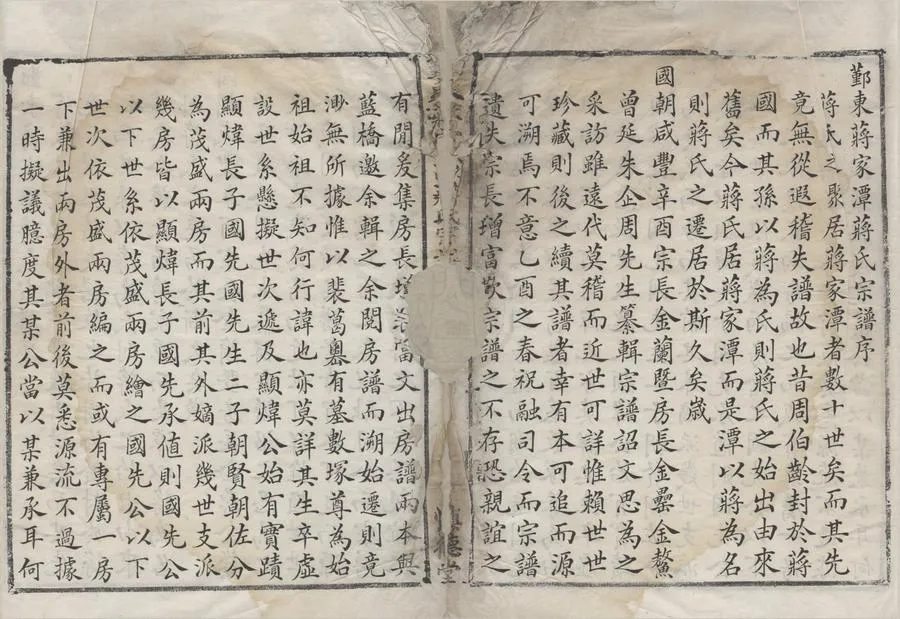 鄞東蔣家潭蔣氏宗譜序
蔣氏之聚居蔣家潭者數十世矣而其先
竟無從遐稽失譜故也昔周伯齡封於蔣
國而其孫以蔣為氏則蔣氏之始出由來
舊矣今蔣氏居蔣家潭而是潭以蔣為名
則蔣氏之遷居於斯久矣歲
國朝咸豐辛酉宗長金蘭暨房長金罍金鰲
曾延朱企周先生纂輯宗譜詔文思為之
采訪雖遠代莫稽而近世可詳惟賴世世
珍藏則後之續其譜者幸有本可追而源
可溯焉不意乙酉之春祝融司令而宗譜
遺失宗長增富歎宗譜之不存恐親誼之
德堂
有閒爰集房長增富文出房譜兩本與
藍橋邀余輯之余閱房譜而溯始遷則竟
渺無所據惟以裴葛嶴有墓數塚尊為始
祖始祖不知何行諱也亦莫詳其生卒虛
設世系懸擬世次遞及顯煒公始有實蹟
顯煒長子國先國先生二子朝賢朝佐分
為茂盛兩房而其前其外嫡派幾世支派
幾房皆以顯煒長子國先承值則國先公
以下世系依茂盛兩房繪之國先公以下
世次依茂盛兩房編之而或有專屬一房
下兼出兩房外者前後莫悉源流不過據
一時擬議臆度其某公當以某兼承耳何